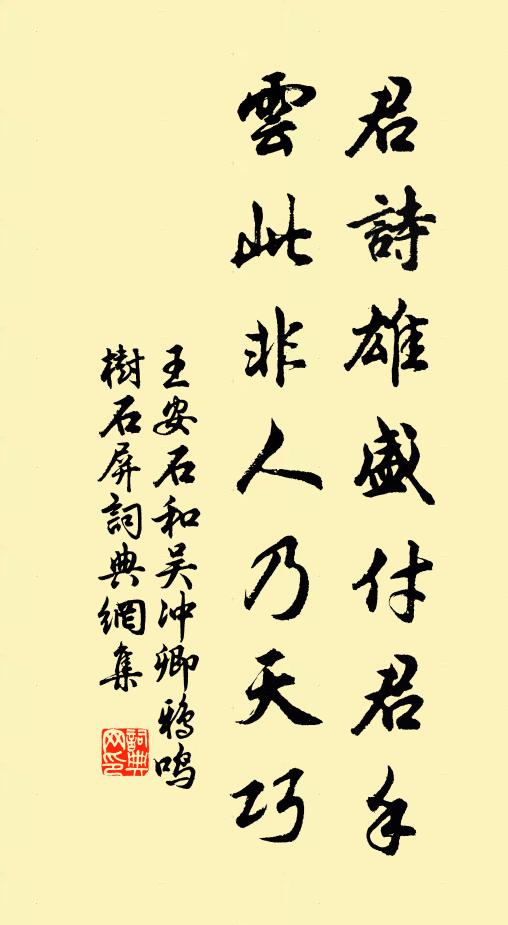 君詩雄盛付君手
雲此非人乃天巧
王安石和吴冲卿鴉鳴
樹石屏詞典網集
詞典
网印